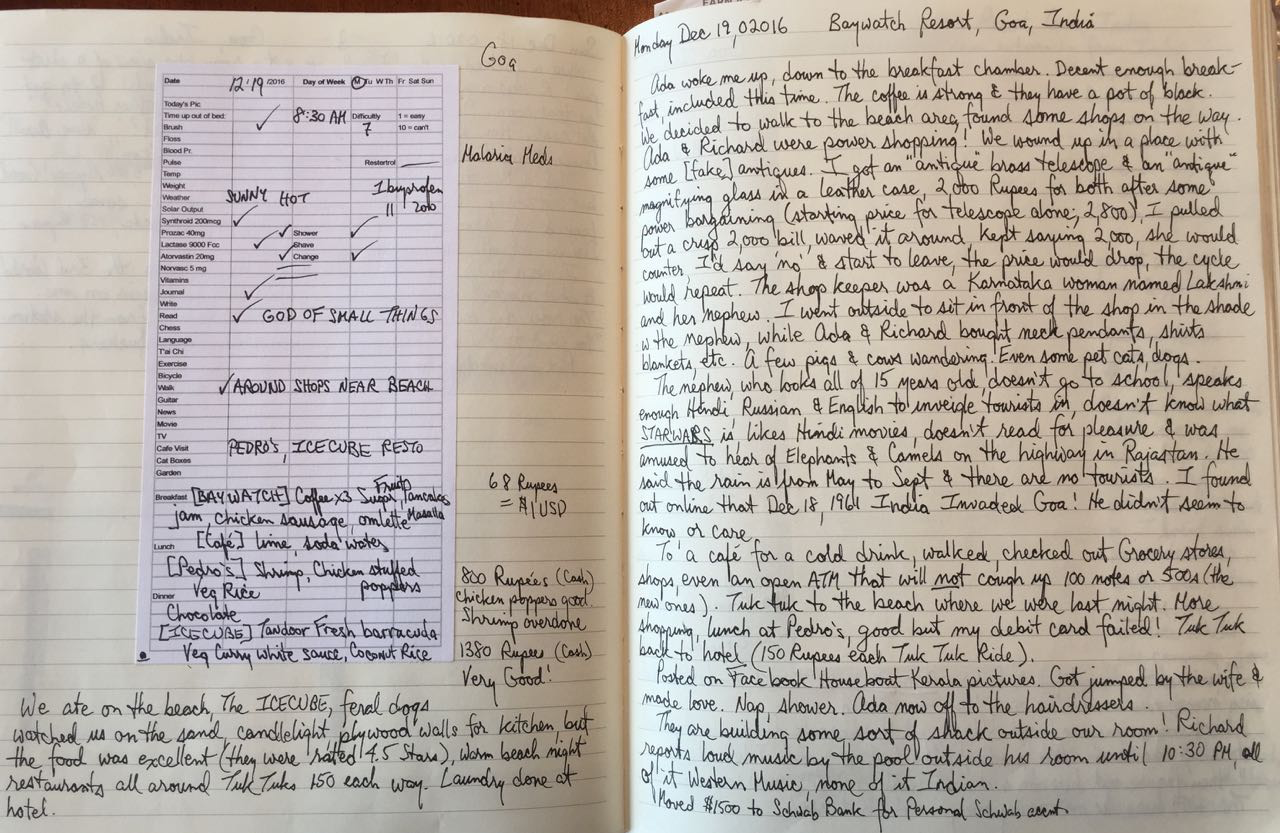 Goa
Date 12/19/2016 Day of Week M Tu W Th Fr Sat Sun
Today's Pic
Time up out of bed: 8:30 AM Difficulty 1 = easy
Brush 7 10 = can't
Floss
Blood Pr.
Pulse Restertrol
Temp
Weight
Weather SUNNY HOT
Solar Output
Synthroid 200mcg
Prozac 40mg Shower
Lactase 9000 Fcc Shave
Atorvastin 20mg Change
Norvasc 5 mg
Vitamins
Journal
Write
Read GOD OF SMALL THINGS
Chess
Language
T'ai Chi
Exercise
Bicycle
Walk AROUND SHOPS NEAR BEACH
Guitar
News
Movie
TV
Cafe Visit PEDRO'S, ICECUBE RESTO
Cat Boxes
Garden
Breakfast [BAYWATCH] Coffee x3 Fruit Pancakes
jam, chicken sausage, omlette Masalla
Lunch [Café] lime, soda water
[Pedro's] Shrimp, Chicken stuffed
Veg Rice poppers
Dinner
Chocolate
[ICECUBE] Tandoor Fresh barracuda
Veg Curry white sauce, Coconut Rice
Malaria Meds
1 Ibuprofen
200
68 Rupees
= $1 USD
800 Rupees (Cash)
chicken poppers good.
Shrimp overdone
1380 Rupees (Cash)
Very Good!
We ate on the beach, The ICECUBE, feral dogs
watched us on the sand, candlelight, plywood walls for kitchen but
the food was excellent (they were rated 4.5 Stars), warm beach night
restaurants all around Tuk Tuks 150 each way. Laundry done at
hotel.
Monday Dec 19, 02016 Baywatch Resort, Goa, India
Ada woke me up, down to the breakfast chamber. Decent enough break-
fast, included this time. The coffee is strong & they have a pot of black.
We decided to walk to the beach area, found some shops on the way.
Ada & Richard were power shopping! We wound up in a place with
some [fake] antiques. I got an "antique" brass telescope & an "antique"
magnifying glass in a leather case, 2,000 Rupees for both after some
power bargaining (starting price for telescope alone; 2,800), I pulled
out a crisp 2,000 bill, waved it around kept saying 2,000, she would
counter, I'd say 'no' & start to leave, the price would drop, the cycle
would repeat. The shop keeper was a Karnataka woman named Lakshmi
and her nephew. I went outside to sit in front of the shop in the shade
w the nephew, while Ada & Richard bought neck pendants, shirts
blankets, etc. A few pigs & cows wandering. Even some pet cats, dogs.
The nephew, who looks all of 15 years old, doesn't go to school, speaks
enough Hindi, Russian & English to inveigle tourists in, doesn't know what
STARWARS is, likes Hindi movies, doesn't read for pleasure & was
amused to hear of Elephants & Camels on the highway in Rajastan. He
said the rain is from May to Sept & there are no tourists. I found
out online that Dec 18, 1961 India Invaded Goa! He didn't seem to
know or care.
To a café for a cold drink, walked, checked out Grocery stores,
shops, even an open ATM that will not cough up 100 notes or 500s (the
new ones). Tuk tuk to the beach where we were last night. More
shopping, lunch at Pedro's, good but my debit card failed! Tuk Tuk
back to hotel (150 Rupees each Tuk Tuk Ride).
Posted on Facebook Houseboat Kerala pictures. Got jumped by the wife &
made love. Nap, shower. Ada now off to the hairdressers.
They are building some sort of shack outside our room! Richard
reports loud music by the pool outside his room until 10:30 PM, all
of it Western Music, none of it Indian.
Moved $1500 to Schwab Bank for Personal Schwab accnt